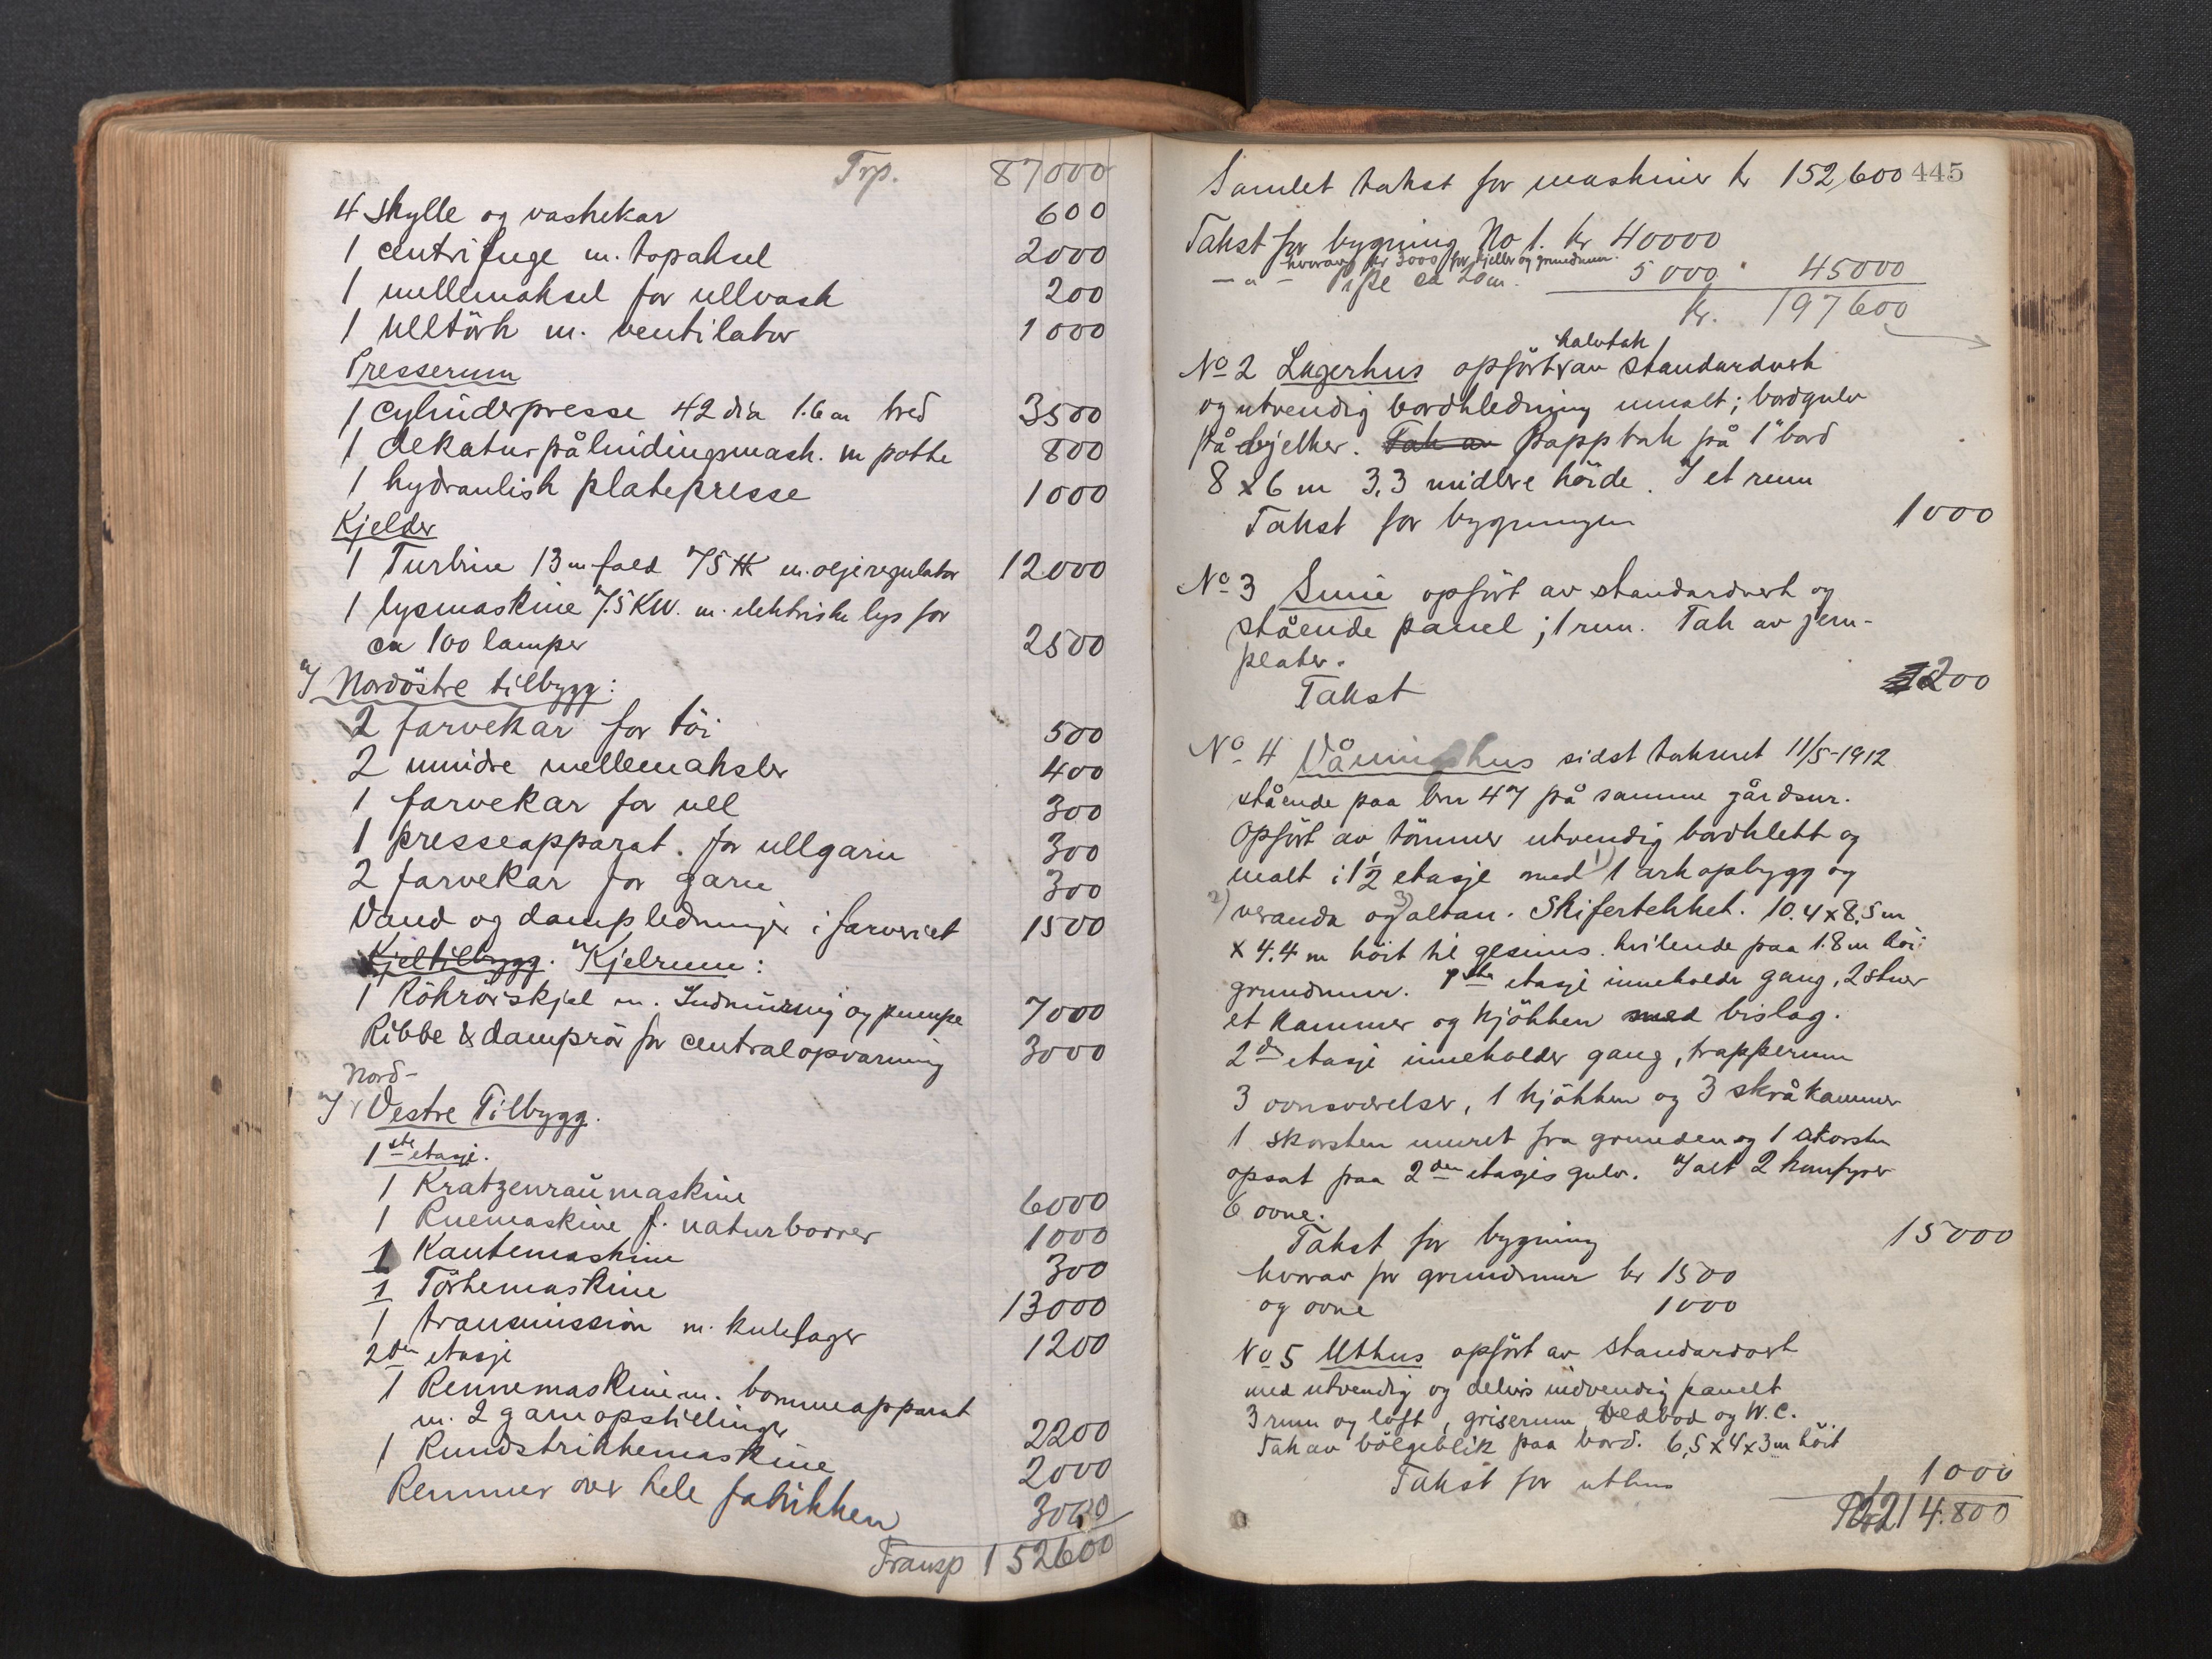 Trp. 87000
4 skylle og vaskekar 600
1 centrifuge m. topaksel 2000
1 mellemaksel for ullvask 200
1 ulltörk m. ventilator 1000
Presserum
1 cylinderpresse 42 dia 1.6 m bred 3500
1 dekatur pålindingsmask. m potte 800
1 hydraulisk platepresse 1000
Kjelder
1 Turbin 13 m fald 75 HK m. oljeregulator 12000
1 lysmaskine 7.5 KW. m. elektriske lys for
ca 100 lamper 2500
I Nordöstre tilbygg:
2 farvekar for töi 500
2 mindre mellemaksler 400
1 farvekar for ull 300
1 presseapparat for ullgarn 300
2 farvekar for garn 300
Vand og dampledninger i farveriet 1500
Kjeltilbygg. Kjelrum:
1 Rökrörskjel m. Indmuring og pumpe 7000
Ribbe & damprör for centralopvarming 3000
Nord-
I Vestre Tilbygg.
1ste etasje.
1 Kratzenraumaskine 6000
1 Ruemaskine f. naturborrer 1000
1 Kantemaskine 300
1 Törkemaskine 13000
1 transmission m. kulelager 1200
2den etasje
1 Rennemaskine m. bommeapparat
m. 2 garnopstillinger 2200
1 Rundstrikkemaskine 2000
Remmer over hele fabrikken 3000
Transp 152600
Samlet takst for maskiner kr 152,600 445
Takst for bygning No 1. kr 40000
hvorav kr 3000 for kjeller og grundmur.
— " — Pipe ca 20 m. 5000 45000
kr. 197600
halvtak
No 2 Lagerhus opfört av standardverk
og utvendig bordkledning umalt; bordgulv
på bjelker. Tak av Papptak på 1" bord
8 x 6 m 3,3 midlere höide. I et rum
Takst for bygningen 1000
No 3 Smie opfört av standardverk og
stående panel; 1 rum. Tak av jern-
plater.
Takst 200
No 4 Våningshus sidst taksert 11/5-1912
stående paa bnr 47 på samme gårdsnr.
Opfört av tömmer utvendig bordklett og
malt i 1 1/2 etasje med 1) 1 ark opbygg og
2) veranda og 3) altan. Skifertekket. 10.4 x 8,5 m
x 4.4 m höit til gesims. hvilende paa 1.8 m höi
grundmur. 1ste etasje inneholder gang, 2 stuer
et kammer og kjökken med bislag.
2den etasje inneholder gang, trapperum
3 ovnsværelser, 1 kjökken og 3 skråkammer
1 skorsten muret fra grunden og 1 skorsten
opsat paa 2den etasjes gulv. I alt 2 komfyrer
6 ovne.
Takst for bygning 15000
hvorav for grundmur kr 1500
og ovne 1000
No 5 Uthus opfört av standardverk
med utvendig og delvis indvendig panelt
3 rum og loft, griserum, Vedbod og W.C.
Tak av bölgeblik paa bord. 6,5 x 4 x 3 m höit
Takst for uthus 1000
Kr 214.800